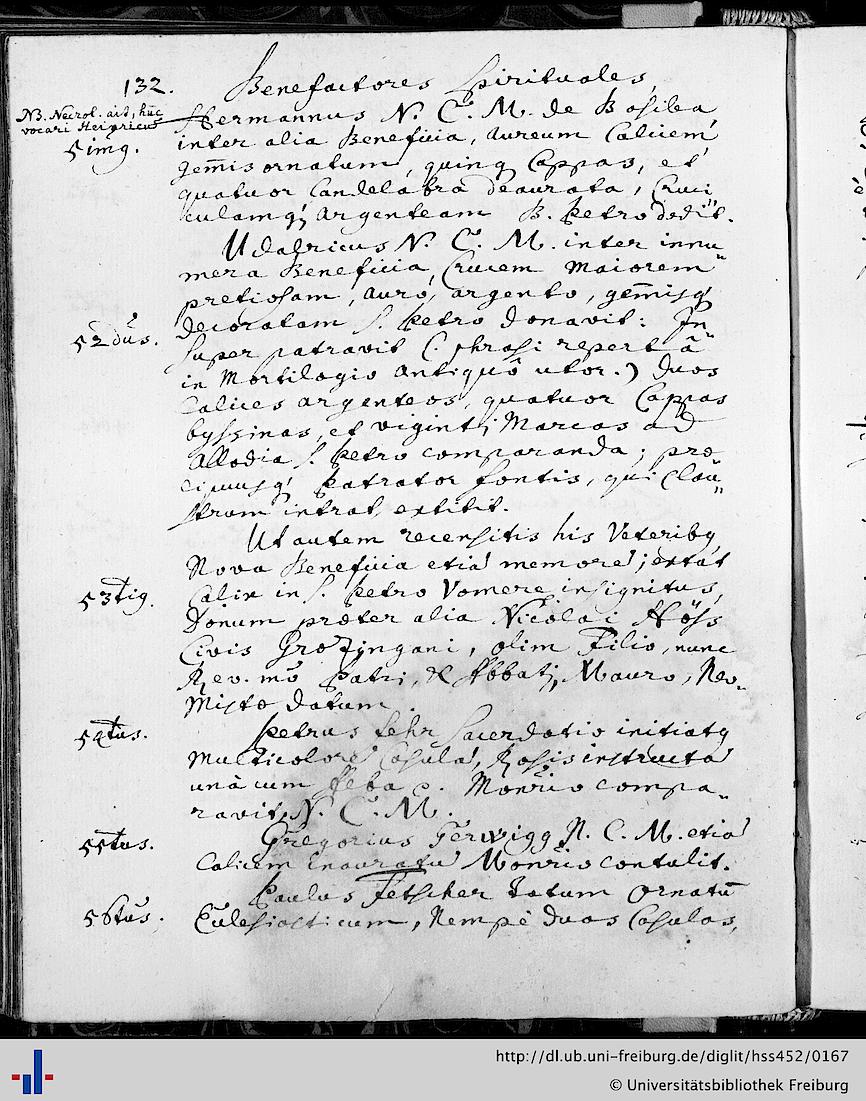 132. Benefactores Spirituales
NB. Necrol. ait, hūc
vocari Heinricus
Hermannus N. C. M. de Basilea
51mg.
inter alia Beneficia, aureum Calicem
gem̄is ornatum, quinq Cappas, et
quatuor Candelabra deaurata, Cruci
culamq; argenteam B. Petro dedit.
Udalricus N. C. M. inter innu
mera Beneficia, Crucem maiorem
pretiosam, auro, argento, gem̄isq;
52dus.
decoratam S. Petro donavit: In
super patravit (phrasi repertâ
in Mortilogio antiquô utor.) duos
Calices argenteos, quatuor Cappas
byssinas, et viginti Marcas ad
Allodia S. Petro comparanda; præ
cipuusq; Patrator fontis, qui Clau
strum intrat, extitit.
Ut autem recensitis his Veteribq
Nova Beneficia etiā memorē; extāt
53tig.
Calix in S. Petro Vomere insignitus,
Donum præter alia Nicolai Höss
Civis Grozingani, olim Filio, nunc
Rev.mô Patri, & Abbati, Mauro, Neo
Mistæ datum.
54tus.
Petrus Fehr Sacerdotio initiatq
multicolorē Casulā, Rosis instructā
unà cum Alba c. Monrio compa
ravit N. C. M.
55tus.
Gregorius Gerwigg N. C. M. etiā
Calicem inauratū Monrio contulit.
Paulus Fetscher totum ornatū
56tus.
Ecclesiasticum, Nempè duas Casulas,
http://dl.ub.uni-freiburg.de/diglit/hss452/0167
© Universitätsbibliothek Freiburg